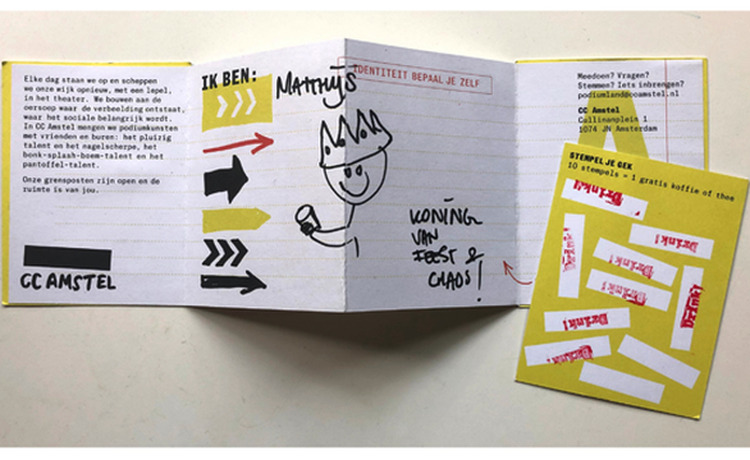 Elke dag staan we op en scheppen
we onze wijk opnieuw, met een lepel,
in het theater. We bouwen aan de
oersoep waar de verbeelding ontstaat,
waar het sociale belangrijk wordt.
In CC Amstel mengen we podiumkunsten
met vrienden en buren: het pluizig
talent en het nagelscherpe, het
bonk-splash-boem-talent en het
pantoffel-talent.
Onze grensposten zijn open en de
ruimte is van jou.
CC AMSTEL
IK BEN:
MATTHIJS
IDENTITEIT BEPAAL JE ZELF
KONING
VAN
FEEST &
CHAOS!
Meedoen? Vragen?
Stemmen? Iets inbrengen?
podiumland@ccamstel.nl
CC Amstel
Cullinanplein 1
1074 JN Amsterdam
STEMPEL JE GEK
10 stempels = 1 gratis koffie of thee
Drink!
Drink!
Drink!
Drink!
Drink!
Drink!
Drink!
Drink!